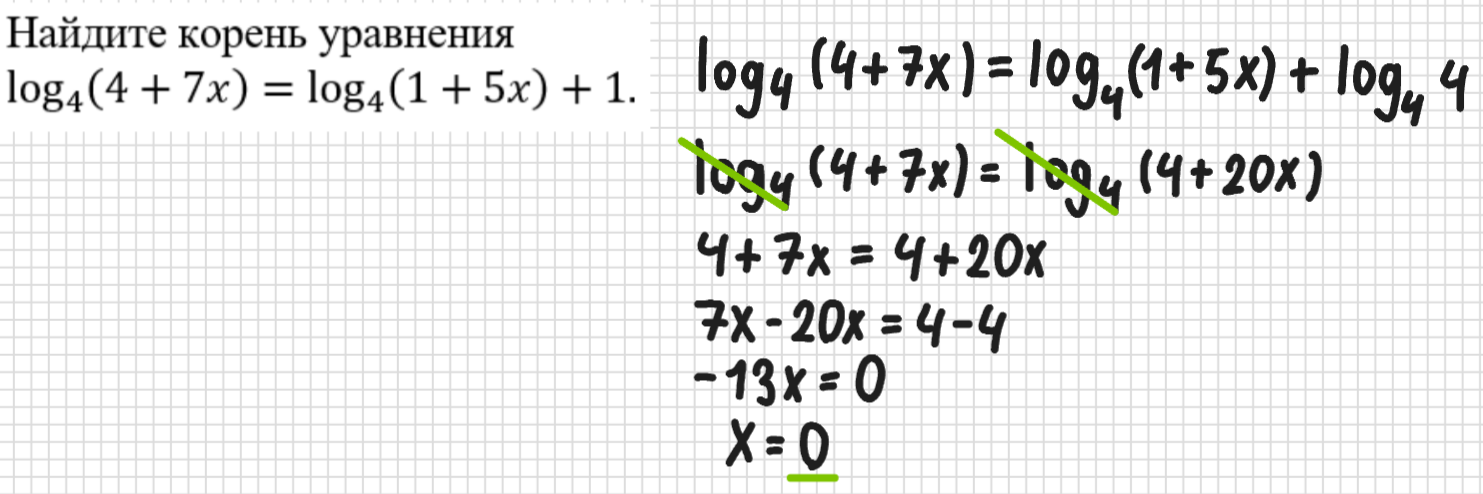 Найдите корень уравнения
log₄(4 + 7x) = log₄(1 + 5x) + 1.
log₄ (4+7x) = log₄(1+5x) + log₄ 4
log₄ (4+7x) = log₄ (4+20x)
4+7x = 4+20x
7x-20x = 4-4
-13x = 0
x = 0